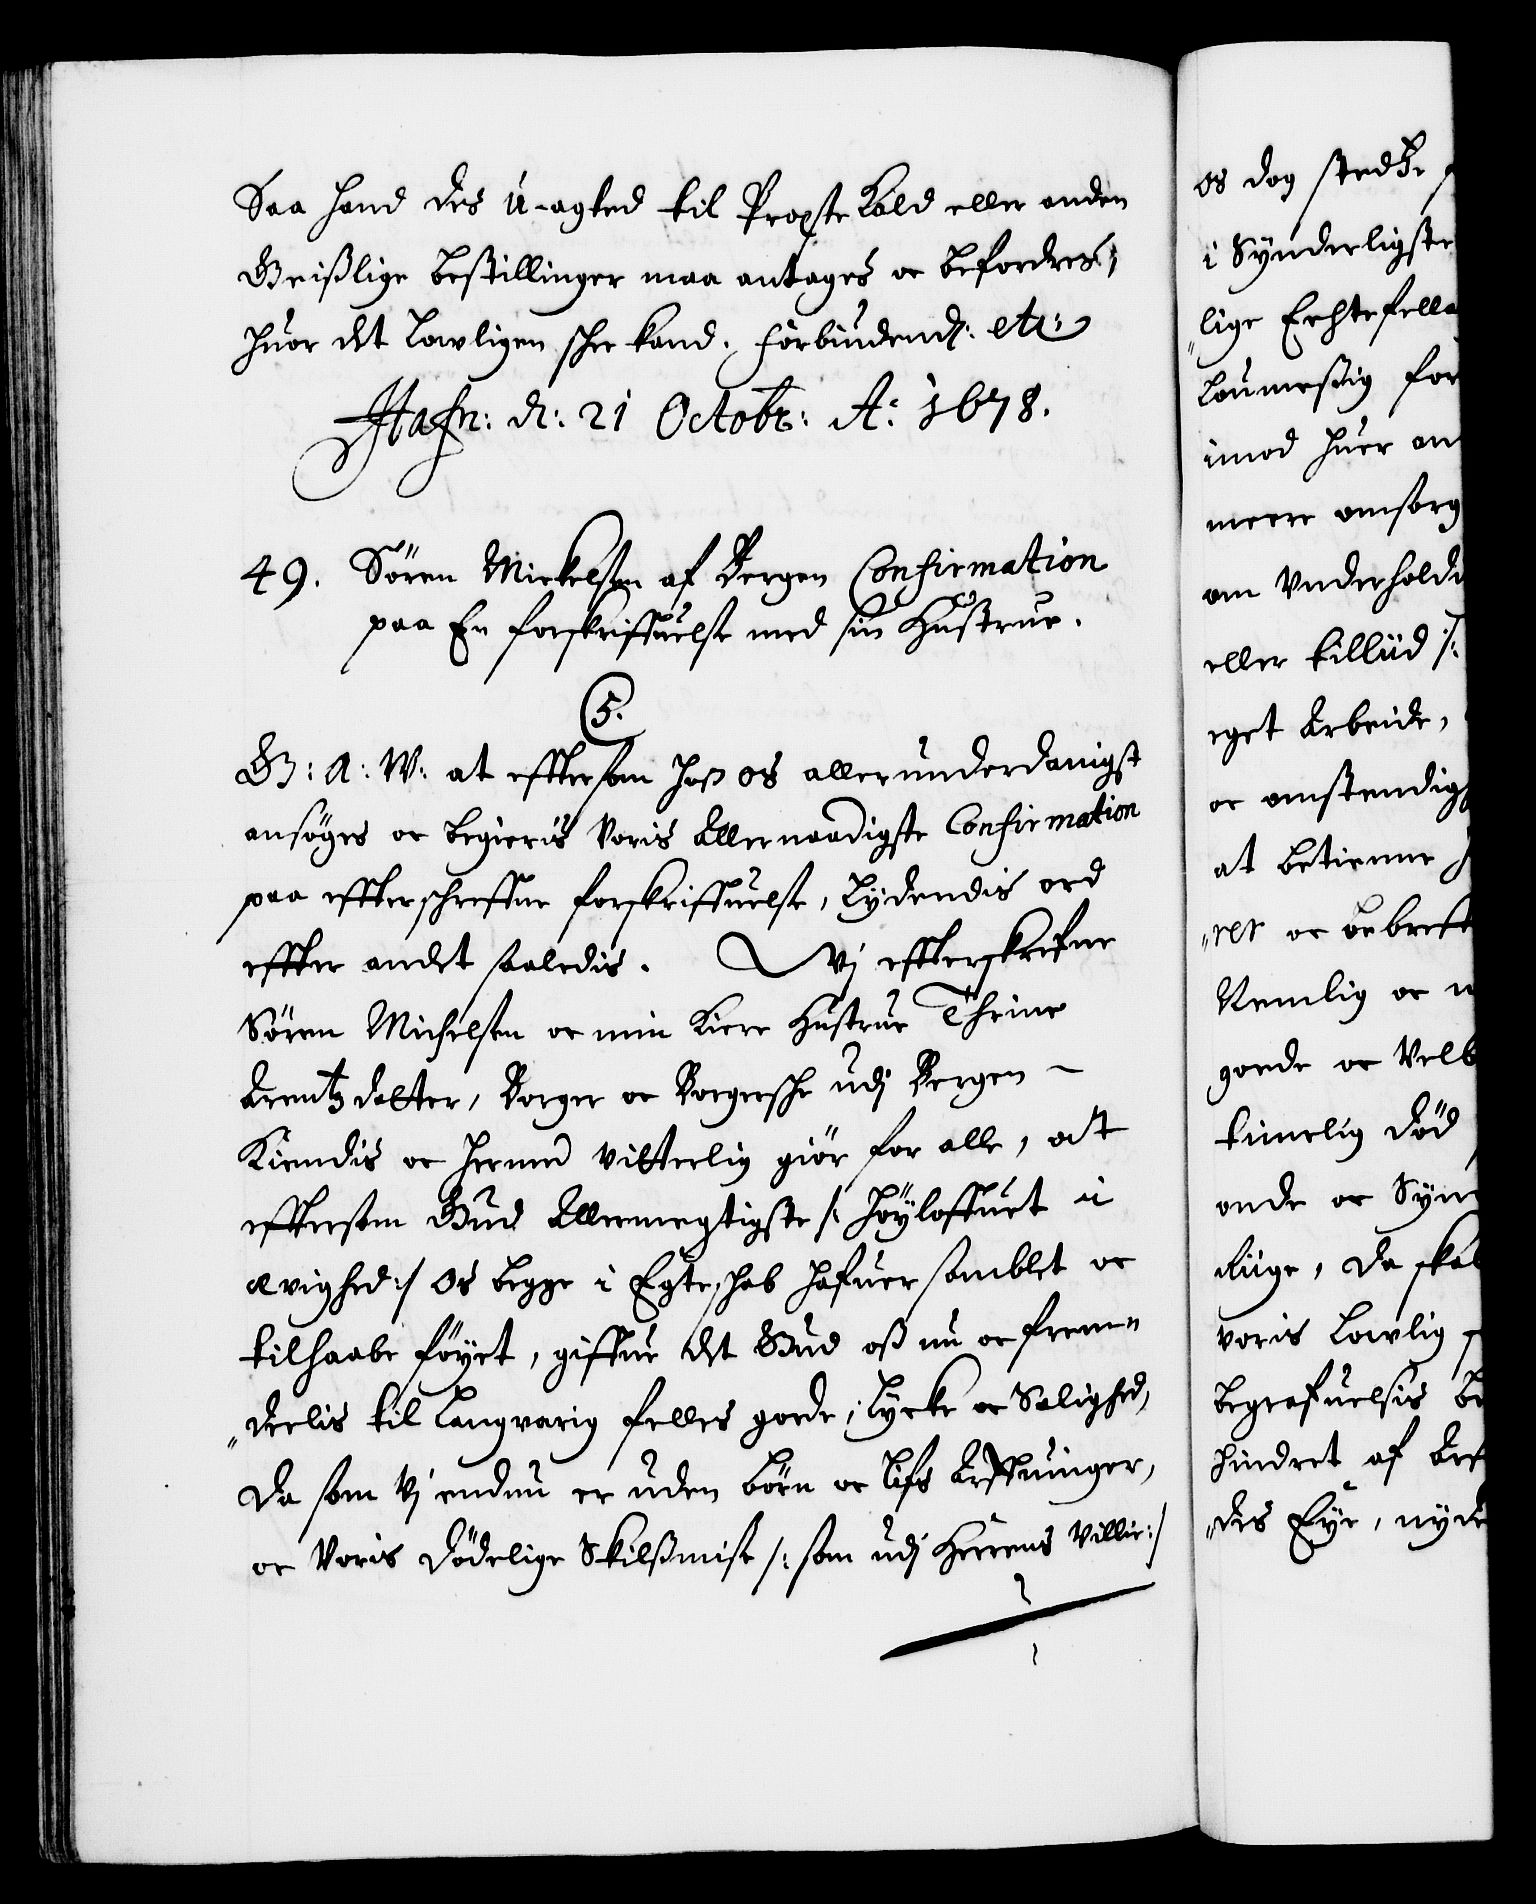 Saa hand des u-agted til Proste Kald eller anden
Geistlige bestillinger maa antages oc befordres,
huor det lowligen schee kand. Forbiudend: etc:
Hafn: d: 21 Octobr: A: 1678.
49. Sören Mickelsen af Bergen Confirmation
paa En forskriffuelse med sin Hustrue.
C5.
G: A: W: at efftersom hoß os allerunderdanigst
ansöges oc begieris Voris Allernaadigste Confirmation
paa effterschreffne forskriffuelse, Lydendis ord
effter andet saaledis. Wj effterskrefne
Sören Michelsen oc min Kiere Hustrue Thrine
Arentzdatter, Borger oc Borgersche udj Bergen
Kiendis oc hermed vitterlig giör for alle, at
efftersom Gud Allermegtigste /: höyloffuet i
ævighed :/ os begge i Egteschab hafuer samblet oc
tilhaabe föyet, giffue det Gud oß nu oc frem=
deelis til Langvarig felles gode, Lycke oc Salighed,
Da som Vj endnu er uden börn oc Lifs Arffuinger,
oc Voris dödelige Skilßmise /: som udj Herrens Villie :/
os dog stedtze
i Synderligste
lige Echtefella
Loumeßig for
imod huer an
meere omsorg
om Vnderholdn
eller tilliid /:
eget Arbeide,
oc omstendig
at betienne
rer oc bebreft
Nemlig oc
gode oc Velb
timelig död
onde oc Syn
Riige, Da skal
voris Lowlig
begrafuelsis be
hindret af Arf
des Eye, nyde